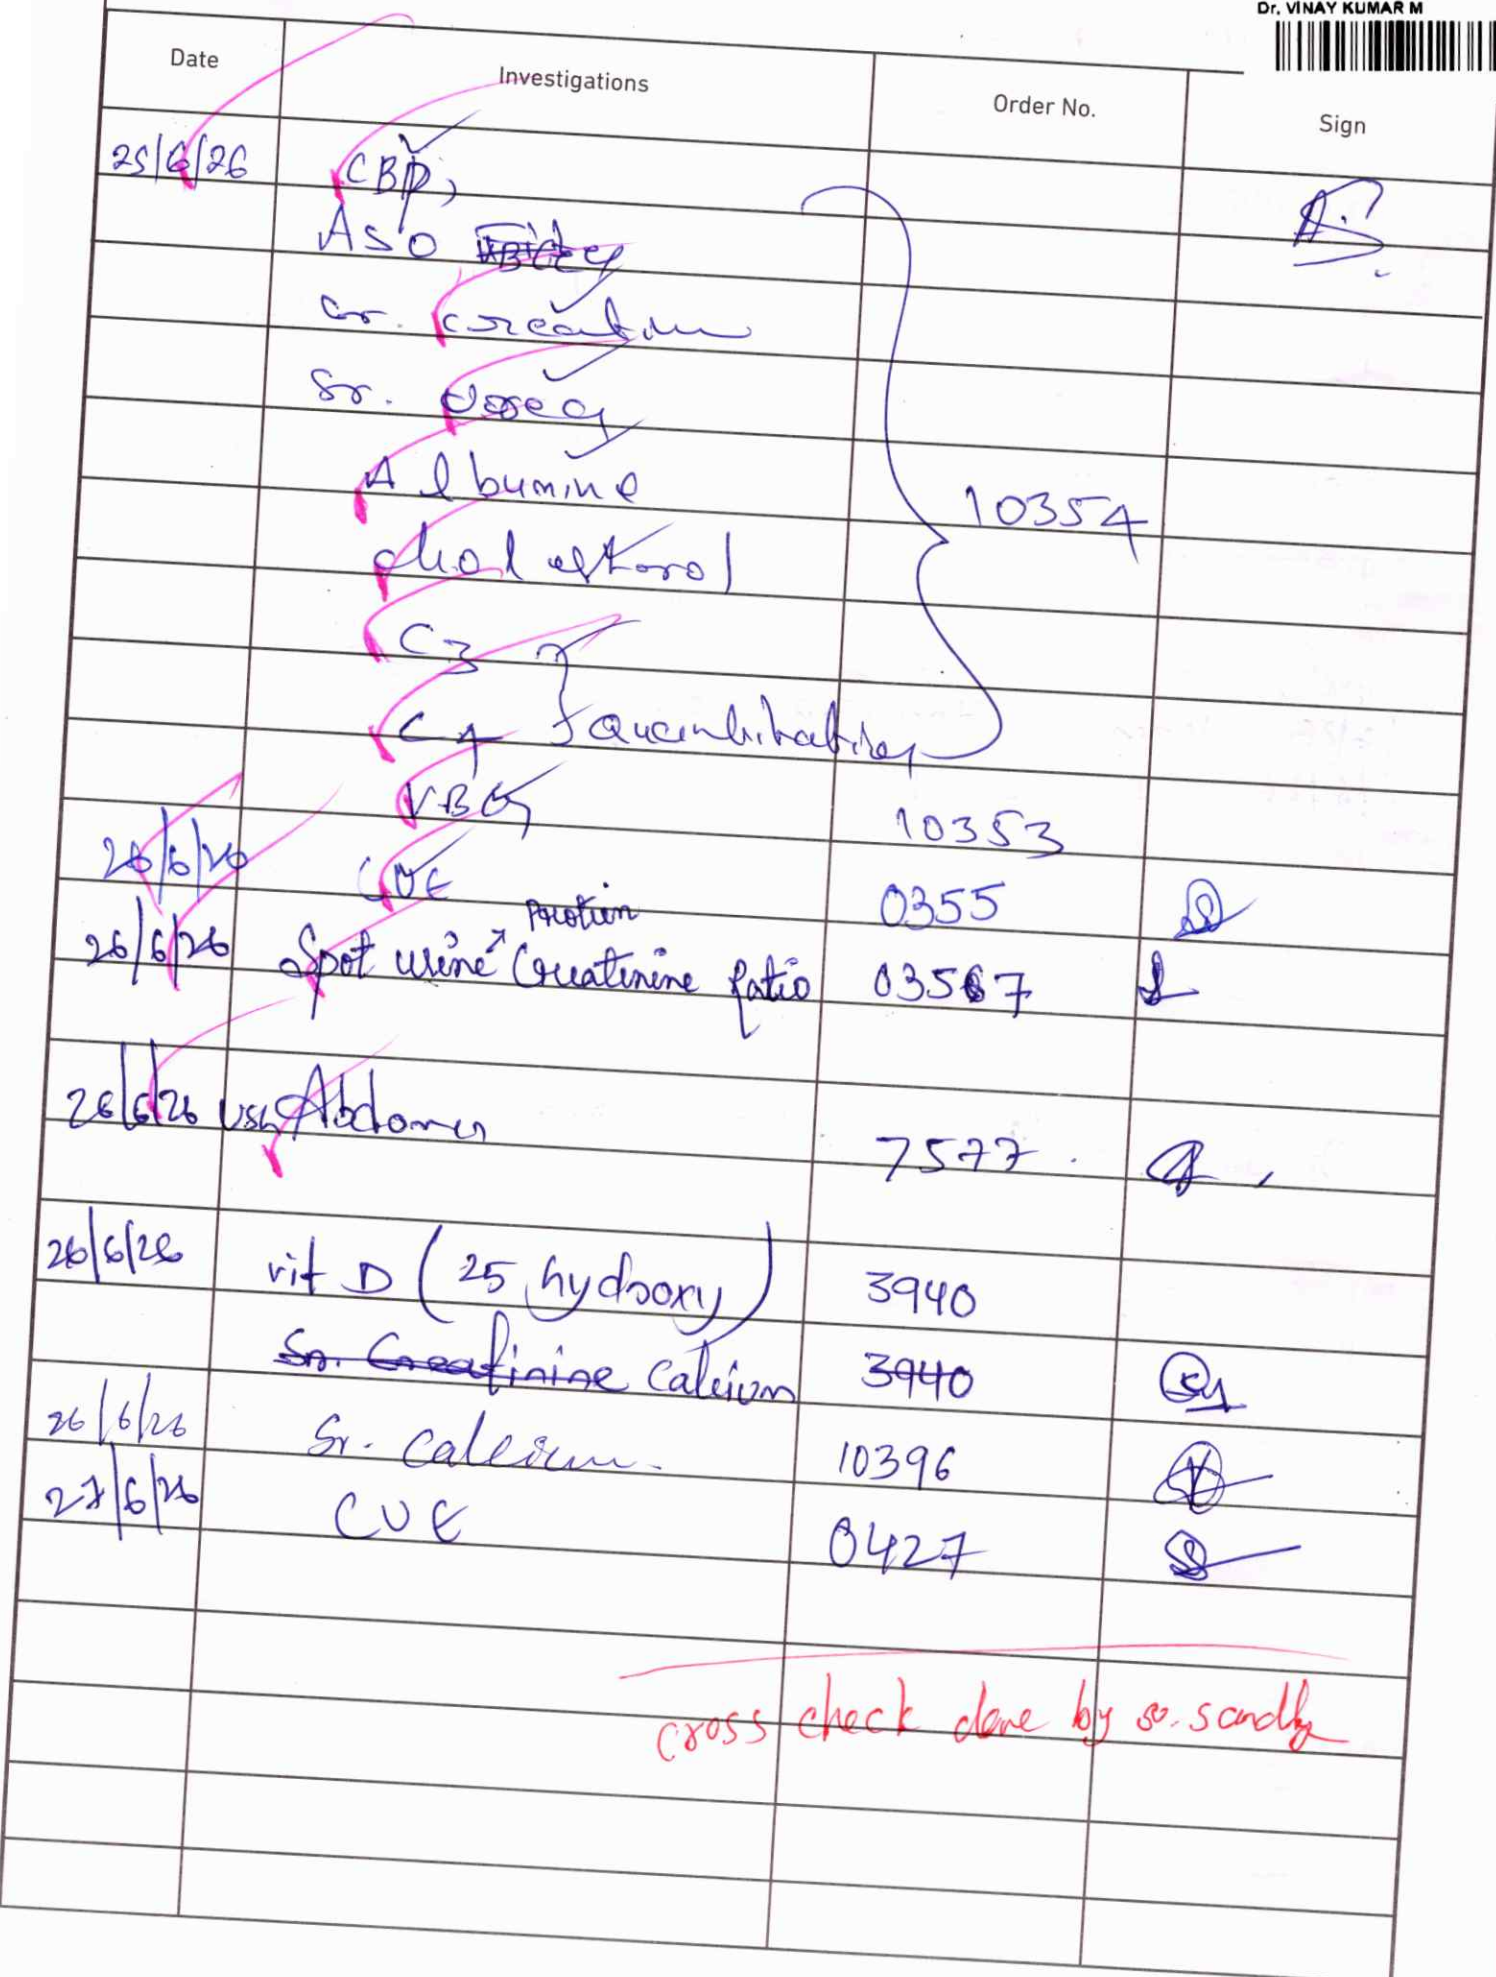 Dr. VINAY KUMAR M
Date Investigations Order No. Sign
25/6/26 CBP,
ASO
Sr. Creatinine
Sr. Urea
Albumine
cholesterol 10354
C3
C4 } Quantitative
VBG 10353
26/6/26 CUE 0355
Protein
26/6/26 Spot urine Creatinine ratio 03567
26/6/26 USG Abdomen 7577.
26/6/26 vit D (25 hydroxy) 3940
Sr. Creatinine Calcium 3940
26/6/26 Sr. Calcium 10396
27/6/26 CUE 0427
cross check done by sr. sandhy